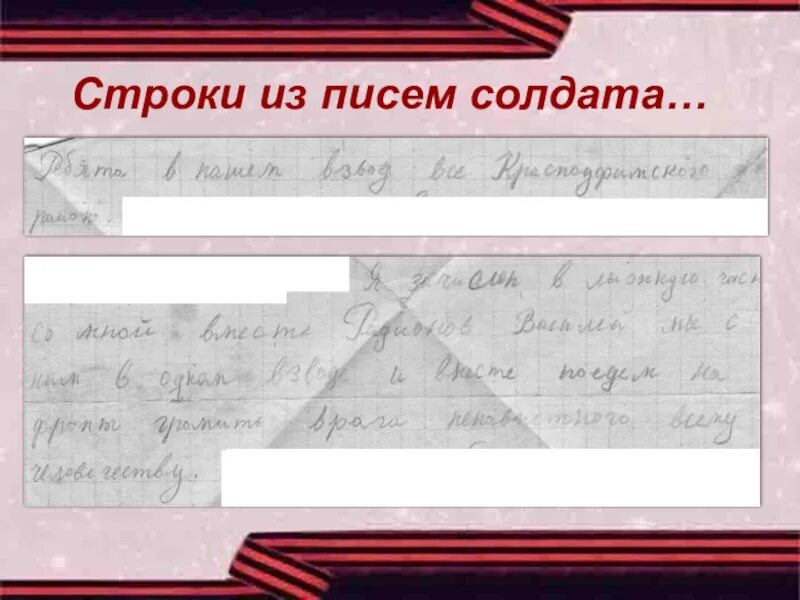 Строки из писем солдата...
Ребята в нашем взвод все Красноуфимского
район.
Я зачислен в лыжную част
со мной вместе Радионов Василей мы с
ним в одном взводе и вместе поедем на
фронт громить врага ненавистного всему
человечеству.